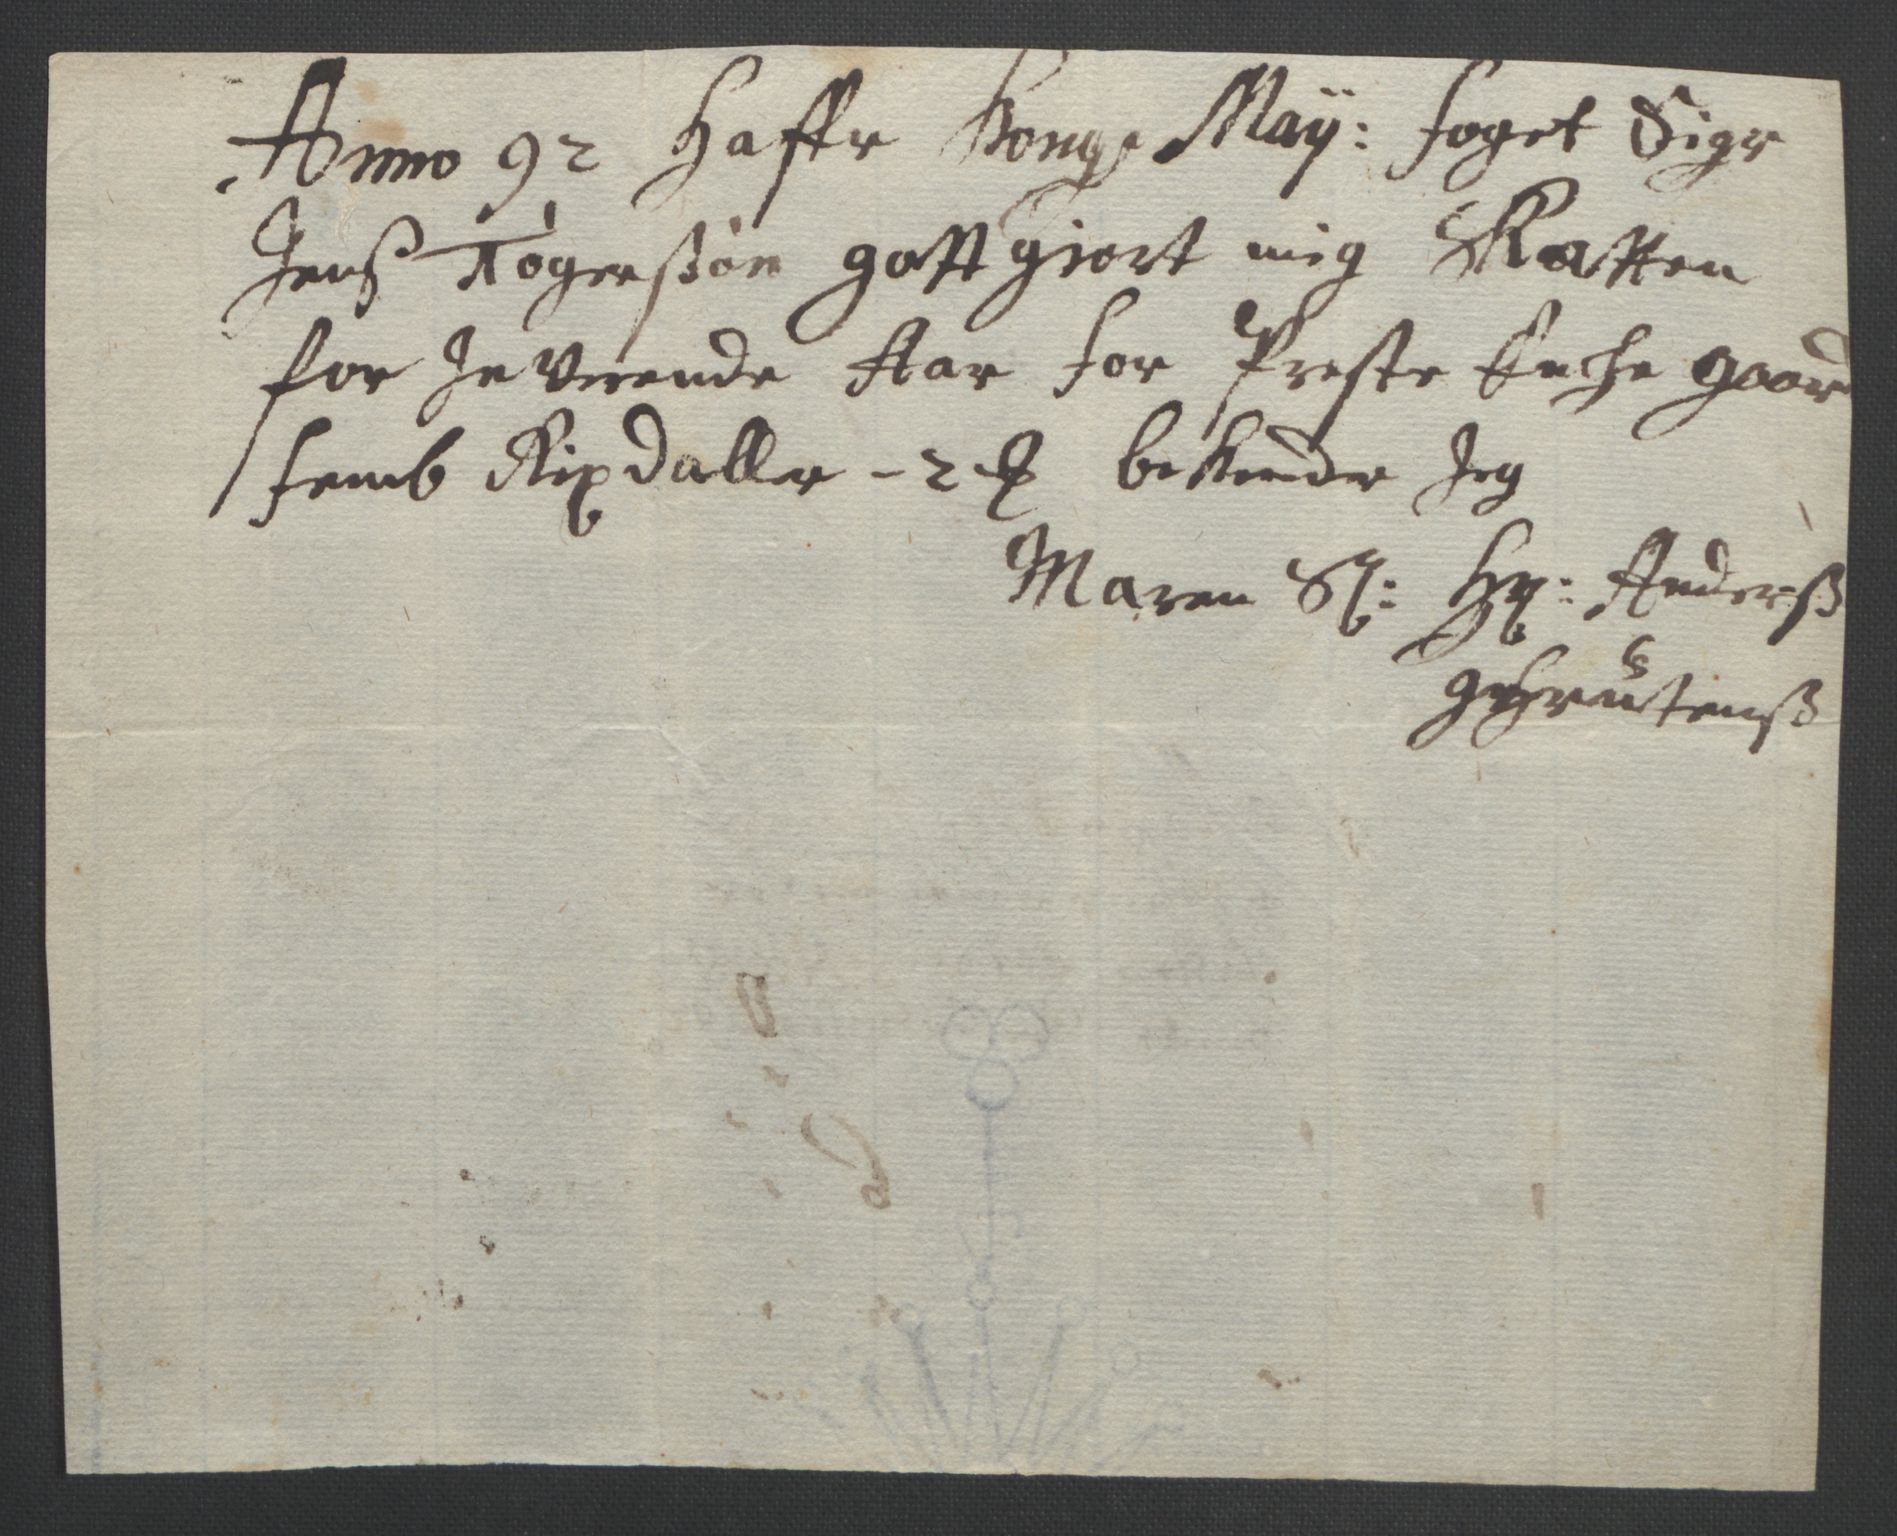 Anno 92 Haffr Kong May: foget Sigr
Jenß Rögerßön gott giort mig Skatten
for Jeverende Aar for Preste Encke gaard
femb Rixdaller - 2 ß bekiender Jeg
Maren Sl: Hr: Anderß